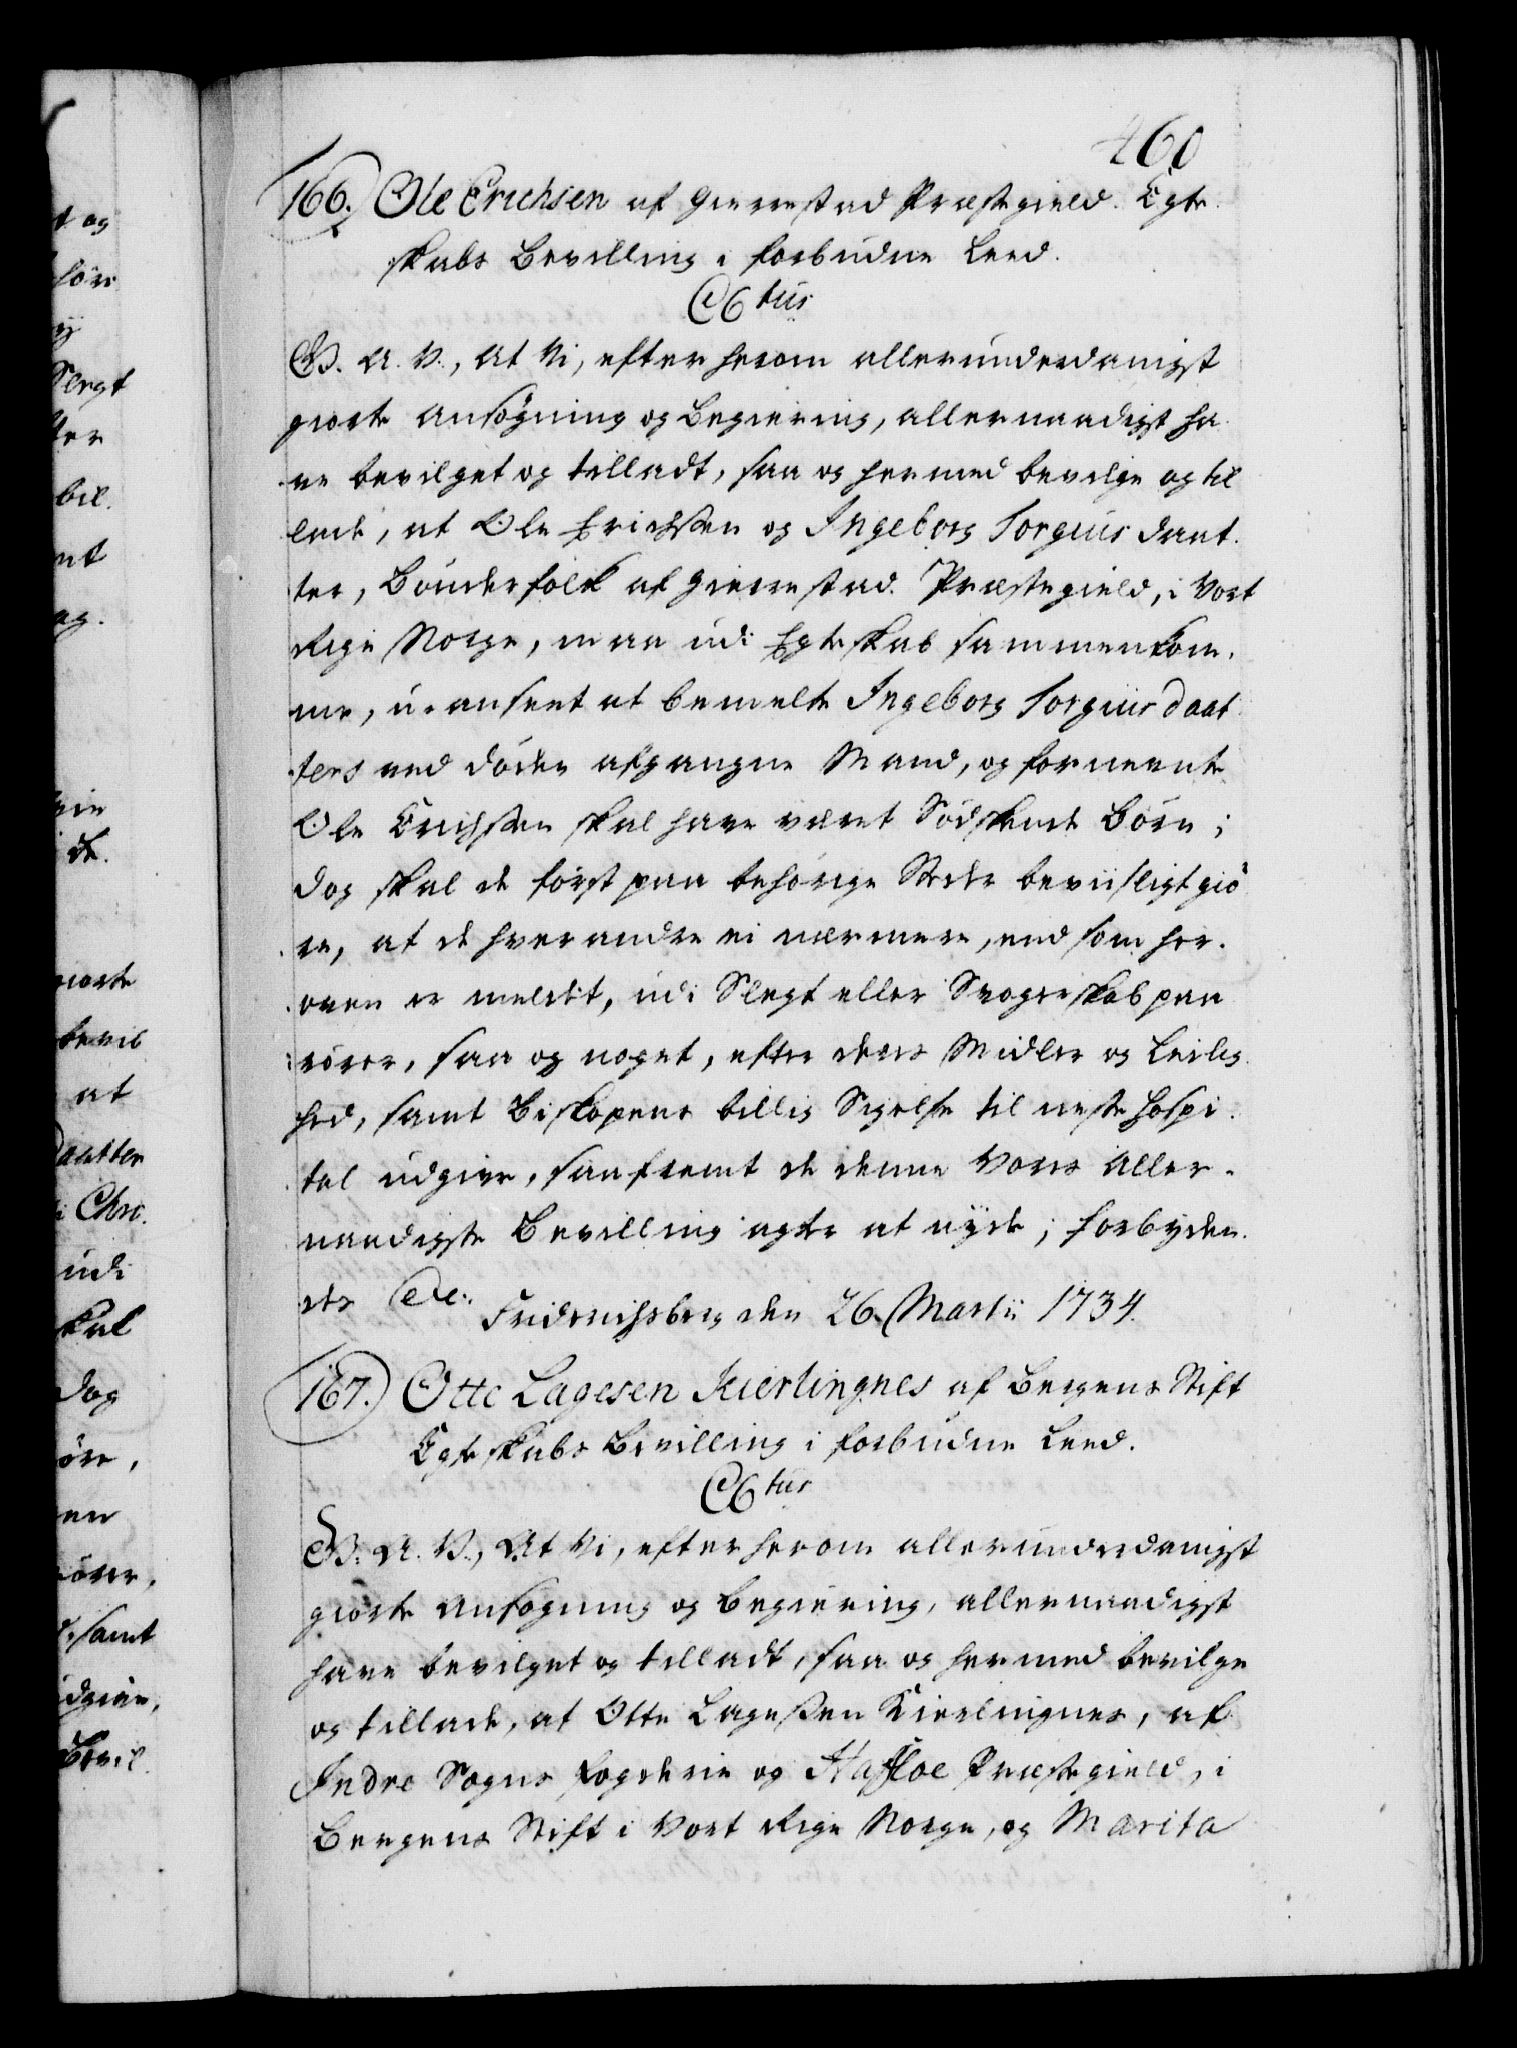 460
166. Ole Erichsen af Gierrestad Præstegield. Egte-
skabs Bevilling i forbudne Leed.
C6tus
G. A. V., At Vi, efter herom allerunderdanigst
giorte Ansøgning og Begiering, allernaadigst ha-
ve bevilget og tilladt, saa og hermed bevilge og til
lade, at Ole Erichssen og Ingeborg Torgiusdaat-
ter, Bønderfolk af Gierrestad Præstegield, i Vort
Rige Norge, maa udi Egteskab sammenkom-
me, u-anseet at bemelte Ingeborg Torgiusdaat-
ters ved døden afgangne Mand, og formeente
Ole Erichssen skal have været Sødskende Børn;
dog skal de først paa behørige Stæder beviisligt giø-
re, at de hverandre ei nærmere, end som her-
oven er meldet, udi Slegt eller Svogerskab paa-
rører, saa og noget, efter deres Midler og Leilig-
hed, samt Biskopens billig Sigelse til neste Hospi-
tal udgive, saafremt de denne Vores Aller-
naadigste Bevilling agter at nyde; Forbyden-
des &c: Friderichsberg den 26. Martii 1734.
167. Otte Lagesen Kierlingnes af Bergens Stift
Egteskabs Bevilling i forbudne Leed.
C6tus
G. A. V., At Vi, efter herom allerunderdanigst
giorte Ansøgning og Begiering, allernaadigst
have bevilget og tilladt, saa og hermed bevilge
og tillade, at Otte Lagessen Kierlingnes, af
Indre Sogns Fogderie og Hafsloe Præstegield, i
Bergens Stift i Vort Rige Norge, og Marita